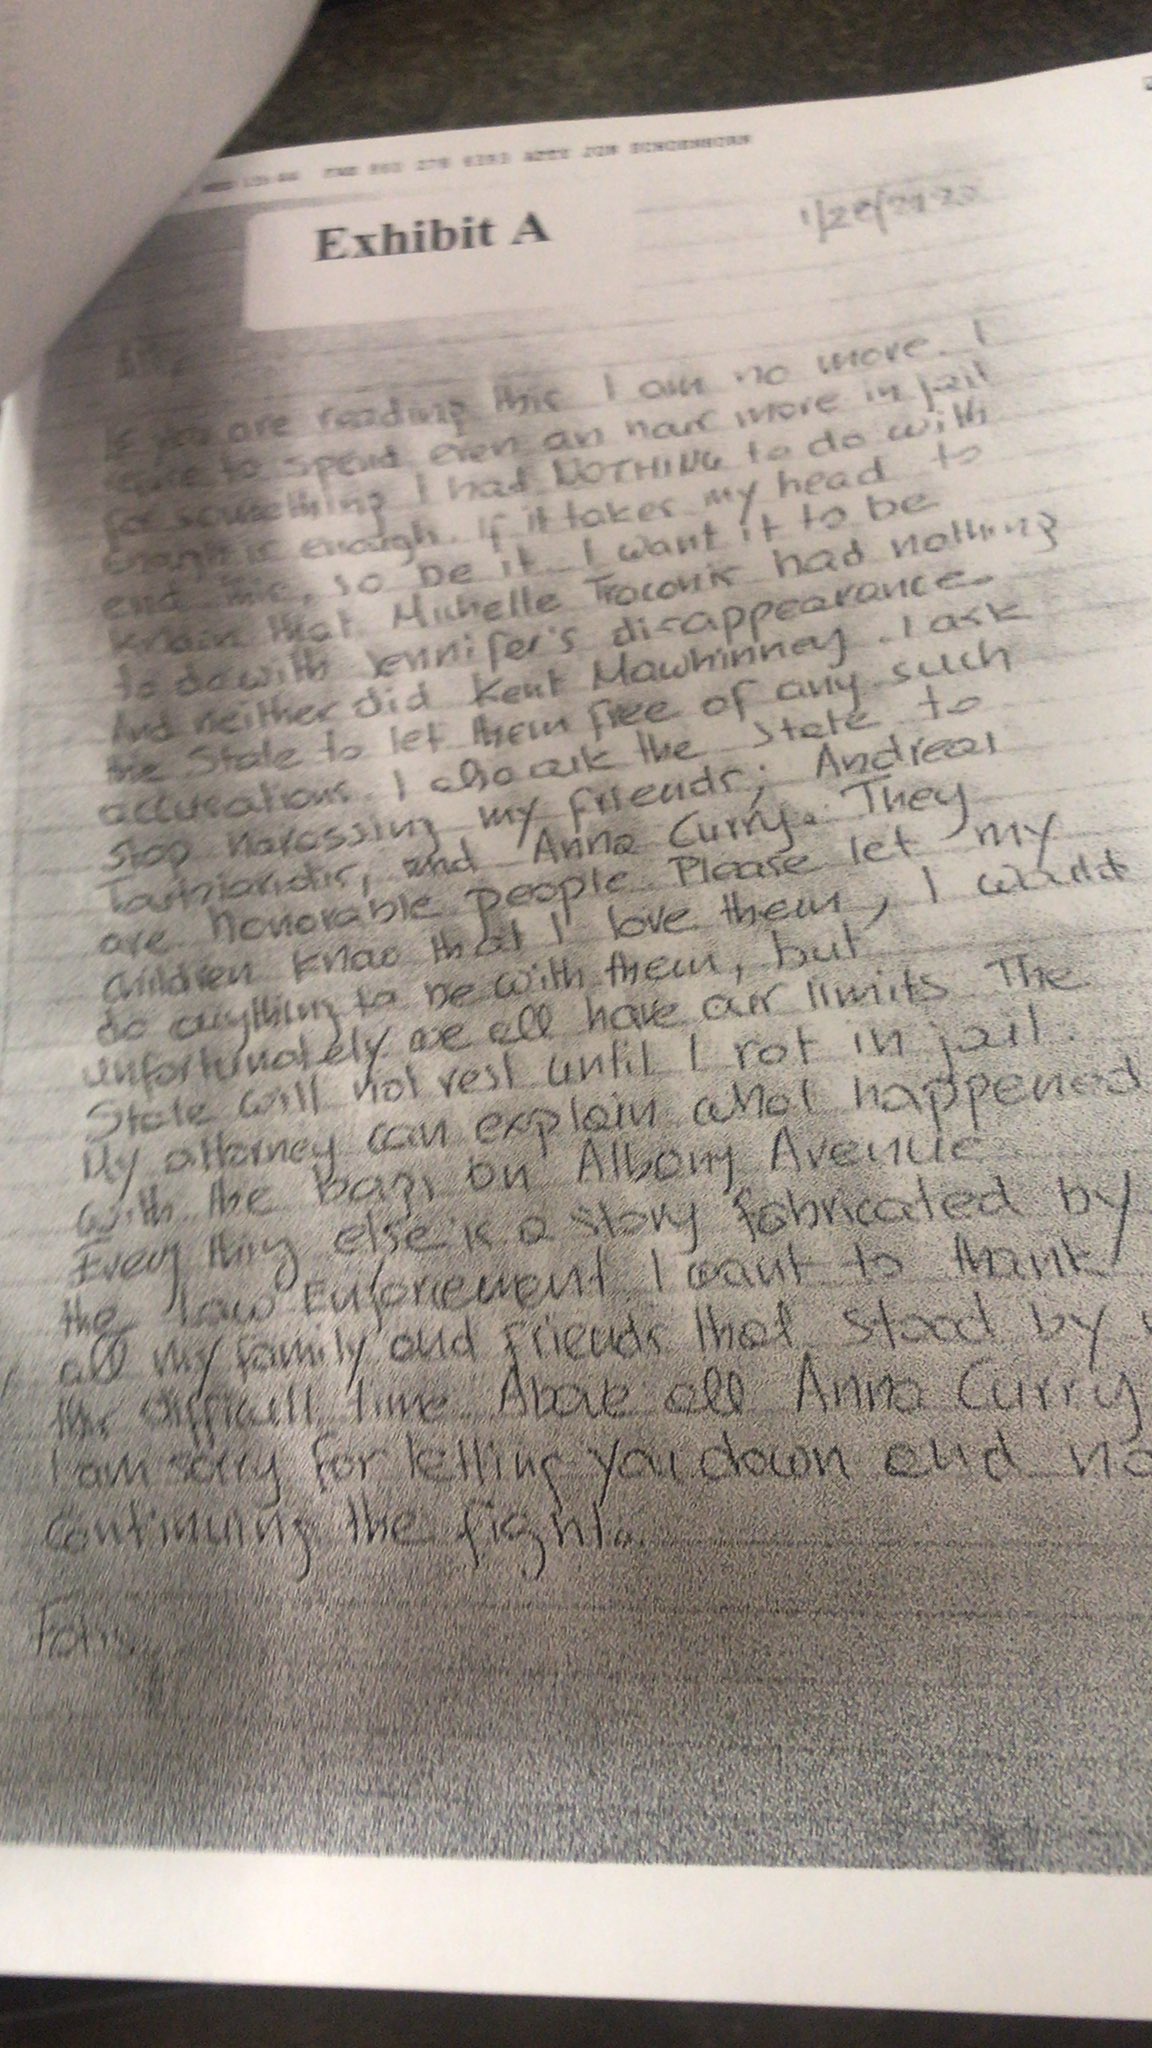 FAX 860 278 6393 ATTY JON SCHOENHORN
Exhibit A
If you are reading this I am no more. I
to spend even an hour more in jail
for something I had NOTHING to do with
Enough is enough. If it takes my head to
end this, so be it. I want it to be
known that Michelle Troconis had nothing
to do with Jennifer's disappearance.
And neither did Kent Mawhinney. I ask
the State to let them free of any such
accusations. I also ask the State to
stop harassing my friends; Andreas
and Anna Curry. They
are honorable people. Please let my
children know that I love them, I would
do anything to be with them, but
unfortunately we all have our limits. The
State will not rest until I rot in jail.
My attorney can explain what happened
with the bags on Albany Avenue.
Everything else is a story fabricated by
the law enforcement. I want to thank
all my family and friends that stood by
this difficult time. Above all Anna Curry
I am sorry for letting you down and
continuing the fight.
Fotis